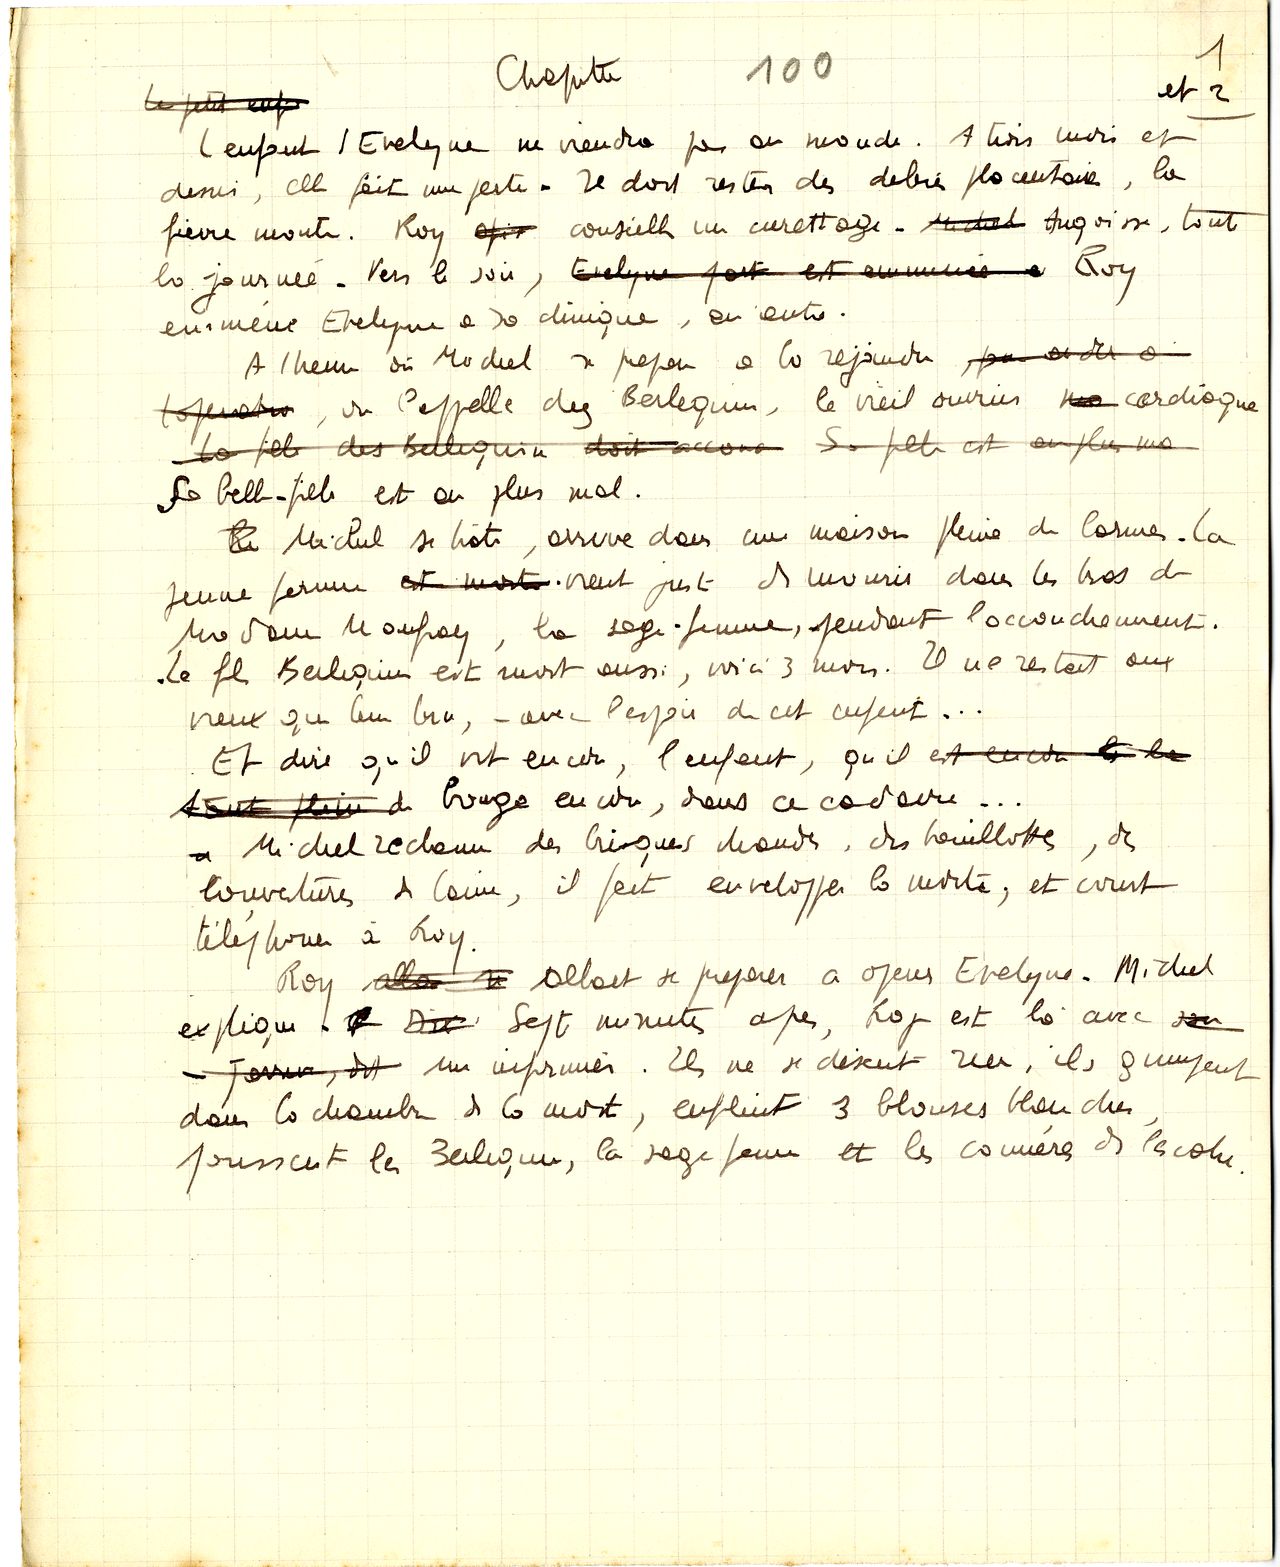 Chapitre 100
1
et 2
Le petit enf
L'enfant d'Evelyne ne viendra pas au monde. A trois mois et
demi, elle fait une perte. Il doit rester des débris placentaires, la
fièvre monte. Roy conseille un curettage. Michel Angoisse, tout
la journée. Vers le soir, Evelyne part est emmenée a Roy
emmène Evelyne a sa clinique, en auto.
A l'heure où Michel se prépare a la rejoindre,
l'operation, on l'appelle chez Berlequin, le vieil ouvrier cardiaque
La fille des Berlequin doit accou Sa fille est au plus ma
Sa belle-fille est au plus mal.
Michel se hâte, arrive dans une maison pleine de larmes. La
jeune femme est morte vient juste de mourir dans les bras de
Madame Maufray, la sage-femme, pendant l'accouchement.
Le fils Berlequin est mort aussi, voici 3 mois. Il ne restait aux
vieux que leur bru, - avec l'espoir de cet enfant...
Et dire qu'il vit encore, l'enfant, qu'il est encore là
tout plein de bouge encore, dans ce cadavre...
Michel réclame des briques chaudes, des bouillottes, des
couvertures de laine, il fait envelopper la morte, et court
téléphoner à Roy.
Roy allait se préparer a opérer Evelyne. Michel
explique. Dix Sept minutes après, Roy est là avec son
un infirmier. Ils ne se disent rien, ils grimpent
dans la chambre de la morte, enfilent 3 blouses blanches,
poussent les Berlequin, la sage femme et les commères dans l'escalier.